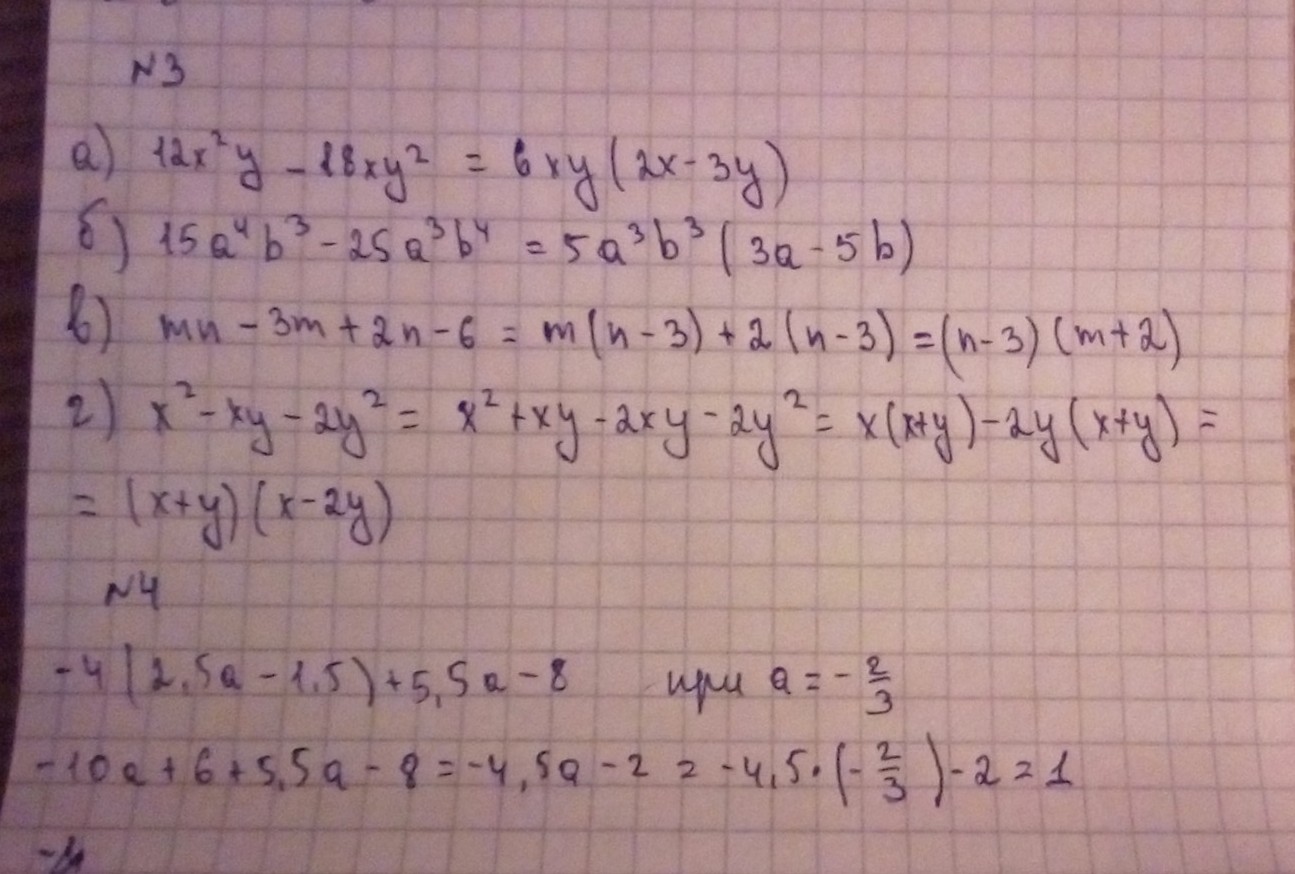 №3
а) 12x²y - 18xy² = 6xy(2x-3y)
б) 15a⁴b³ - 25a³b⁴ = 5a³b³(3a-5b)
в) mn - 3m + 2n - 6 = m(n-3) + 2(n-3) = (n-3)(m+2)
г) x² - xy - 2y² = x² + xy - 2xy - 2y² = x(x+y) - 2y(x+y) =
= (x+y)(x-2y)
№4
-4(2,5a - 1,5) + 5,5a - 8 при a = -2/3
-10a + 6 + 5,5a - 8 = -4,5a - 2 = -4,5·(-2/3) - 2 = 1